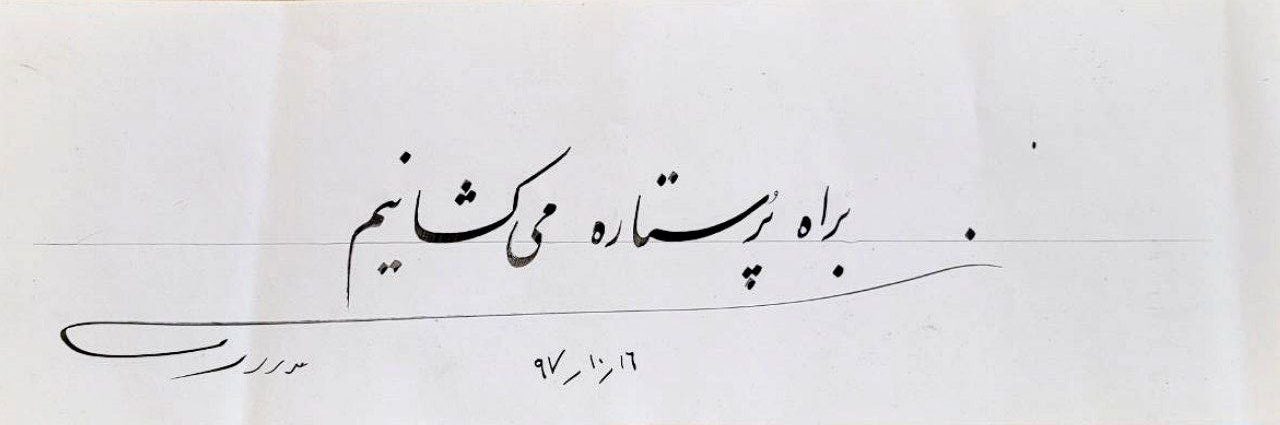 براه پُر ستاره می‌کشانیم
۹۷/۱۰/۱۶